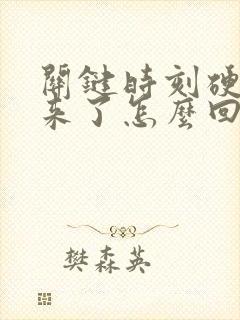 關鍵時刻硬
來了怎麼回
樊森英